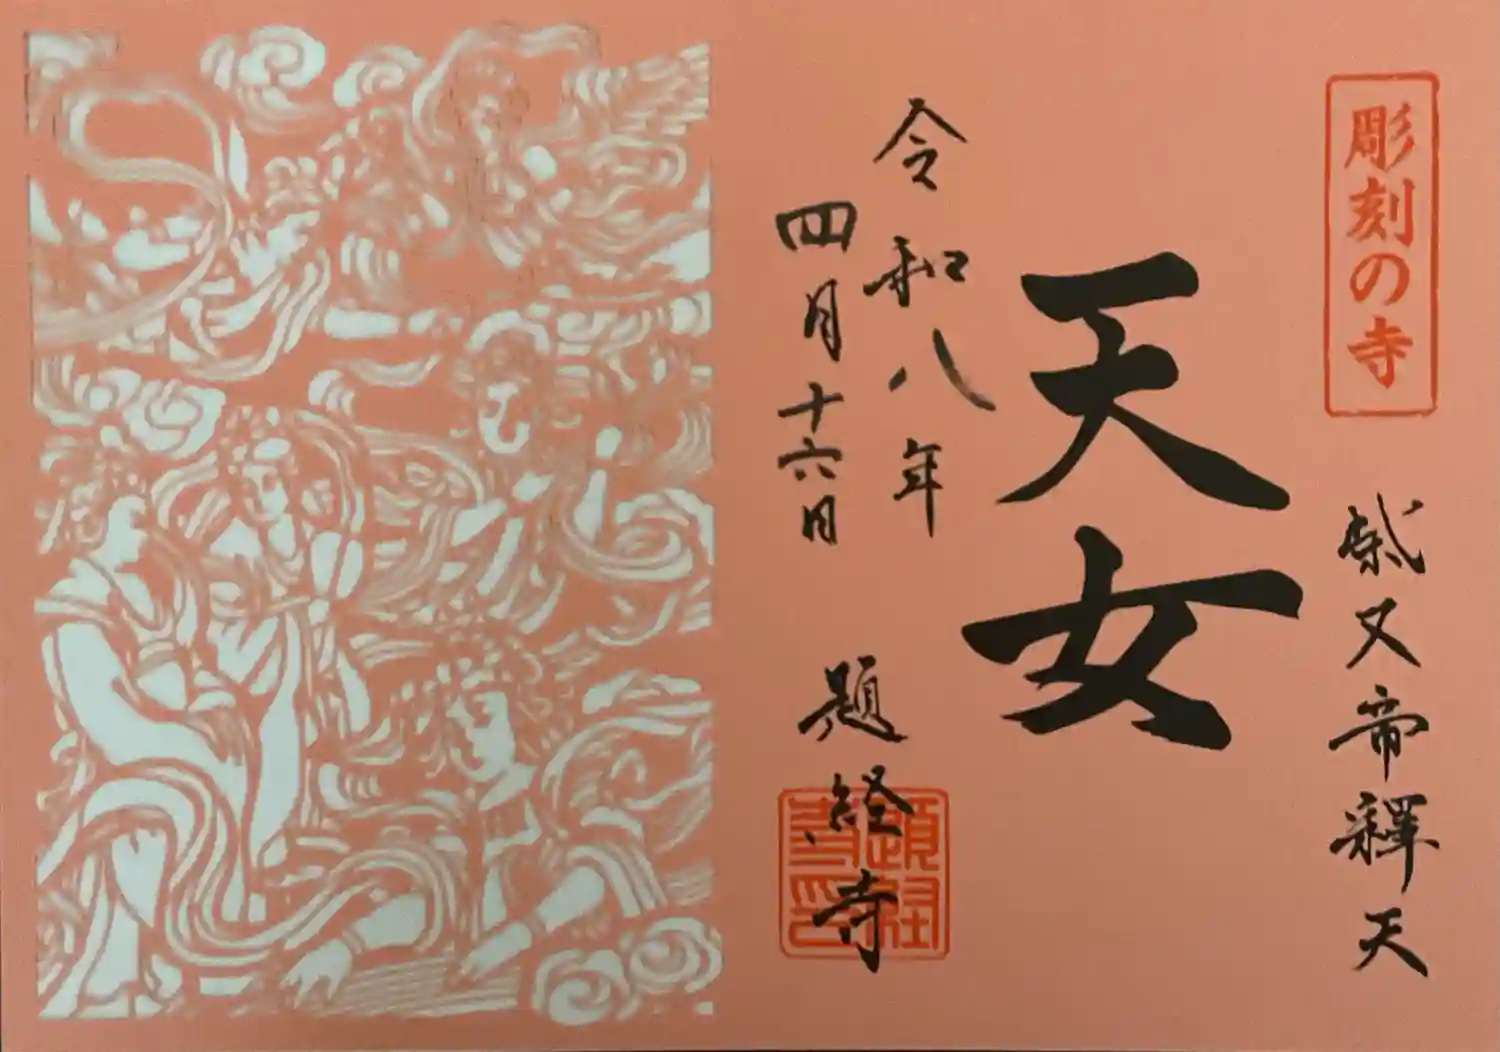 彫刻の寺
柴又帝釋天
天女
令和八年
四月十六日
題経寺